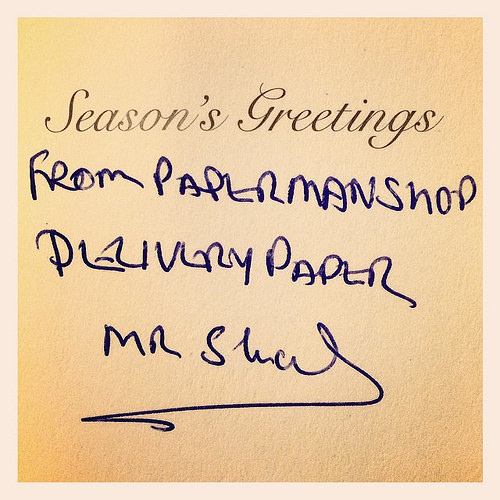 Season's Greetings
FROM PAPERMANSHOP
DELIVERY PAPER
MR Shah